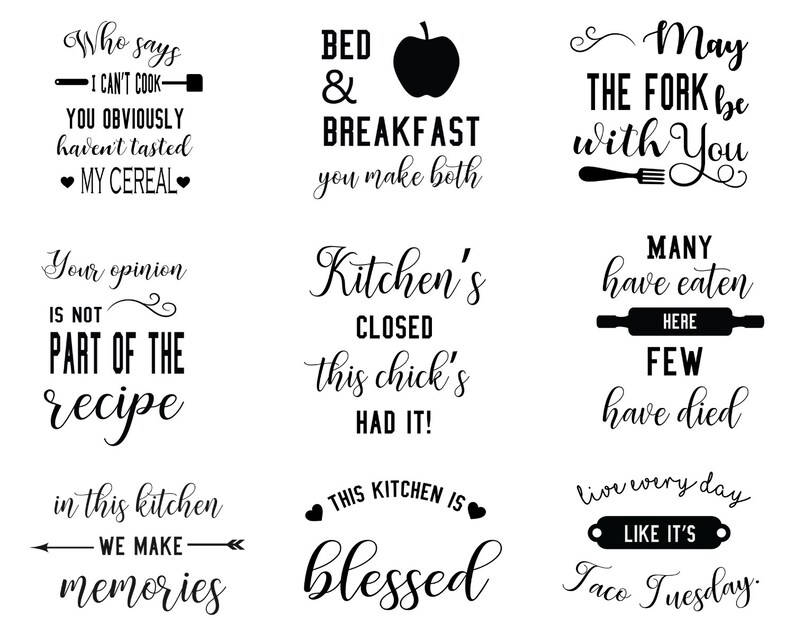 Who says
I CAN'T COOK
YOU OBVIOUSLY
haven't tasted
MY CEREAL
BED
&
BREAKFAST
you make both
May
THE FORK be
with You
Your opinion
IS NOT
PART OF THE
recipe
Kitchen's
CLOSED
this chick's
HAD IT!
MANY
have eaten
HERE
FEW
have died
in this kitchen
WE MAKE
memories
THIS KITCHEN IS
blessed
live every day
LIKE IT'S
Taco Tuesday.